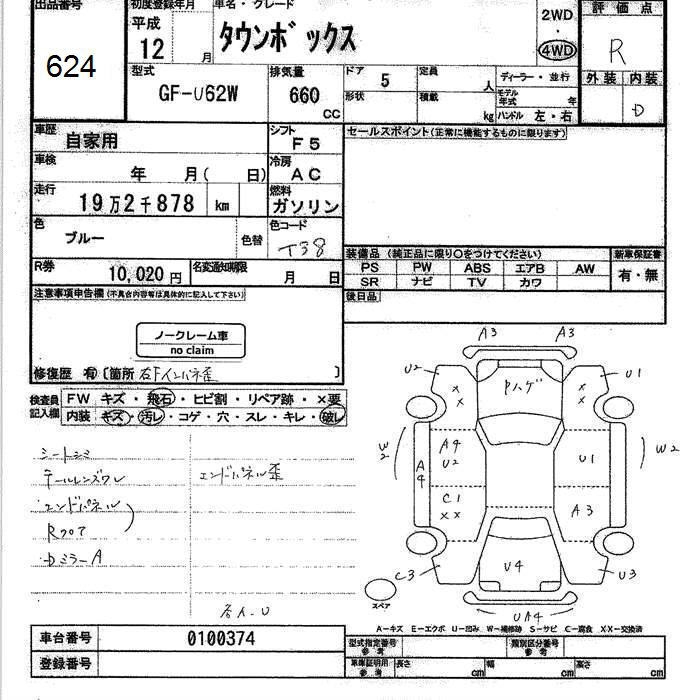 出品番号
624
初度登録年月
平成
12 月
車名・グレード
タウンボックス
2WD
・
4WD
評価点
R
外装 内装
D
型式
GF-U62W
排気量
660
CC
ドア 5
形状
定員 人
積載 kg
ディーラー・並行
モデル年式 年
ハンドル 左・右
車歴
自家用
シフト
F5
車検
年 月( 日)
冷房
AC
走行
19万2千878 km
燃料
ガソリン
色
ブルー
色替
色コード
T38
R券
10,020円
名変通知期限
月 日
セールスポイント(正常に機能するものに限ります)
装備品 (純正品に限り○をつけてください)
PS PW ABS エアB AW
SR ナビ TV カワ
新車保証書
有・無
後日品
注意事項申告欄(不具合内容等は具体的に記入して下さい)
ノークレーム車
no claim
修復歴 有〔箇所 右Fインパネ歪 〕
検査員
記入欄
FW キズ・飛石・ヒビ割・リペア跡・×要
内装 キズ・汚レ・コゲ・穴・スレ・キレ・破レ
シートシミ
テールレンズワレ
エンドパネル
Rフロア
Dミラー A
エンドパネル歪
A3 A3
U2 U1
× × × ×
Pハゲ
W2 W2
A4
A4
U2
U1
C1
××
A3
C3 U4 U3
UA4
スペア
A-キズ E-エクボ U-凹み W-補修跡 S-サビ C-腐食 XX-交換済
車台番号 0100374
登録番号
型式指定番号
参考
類別区分番号
参考
車庫証明用
参考
長さ cm 幅 cm 高さ cm